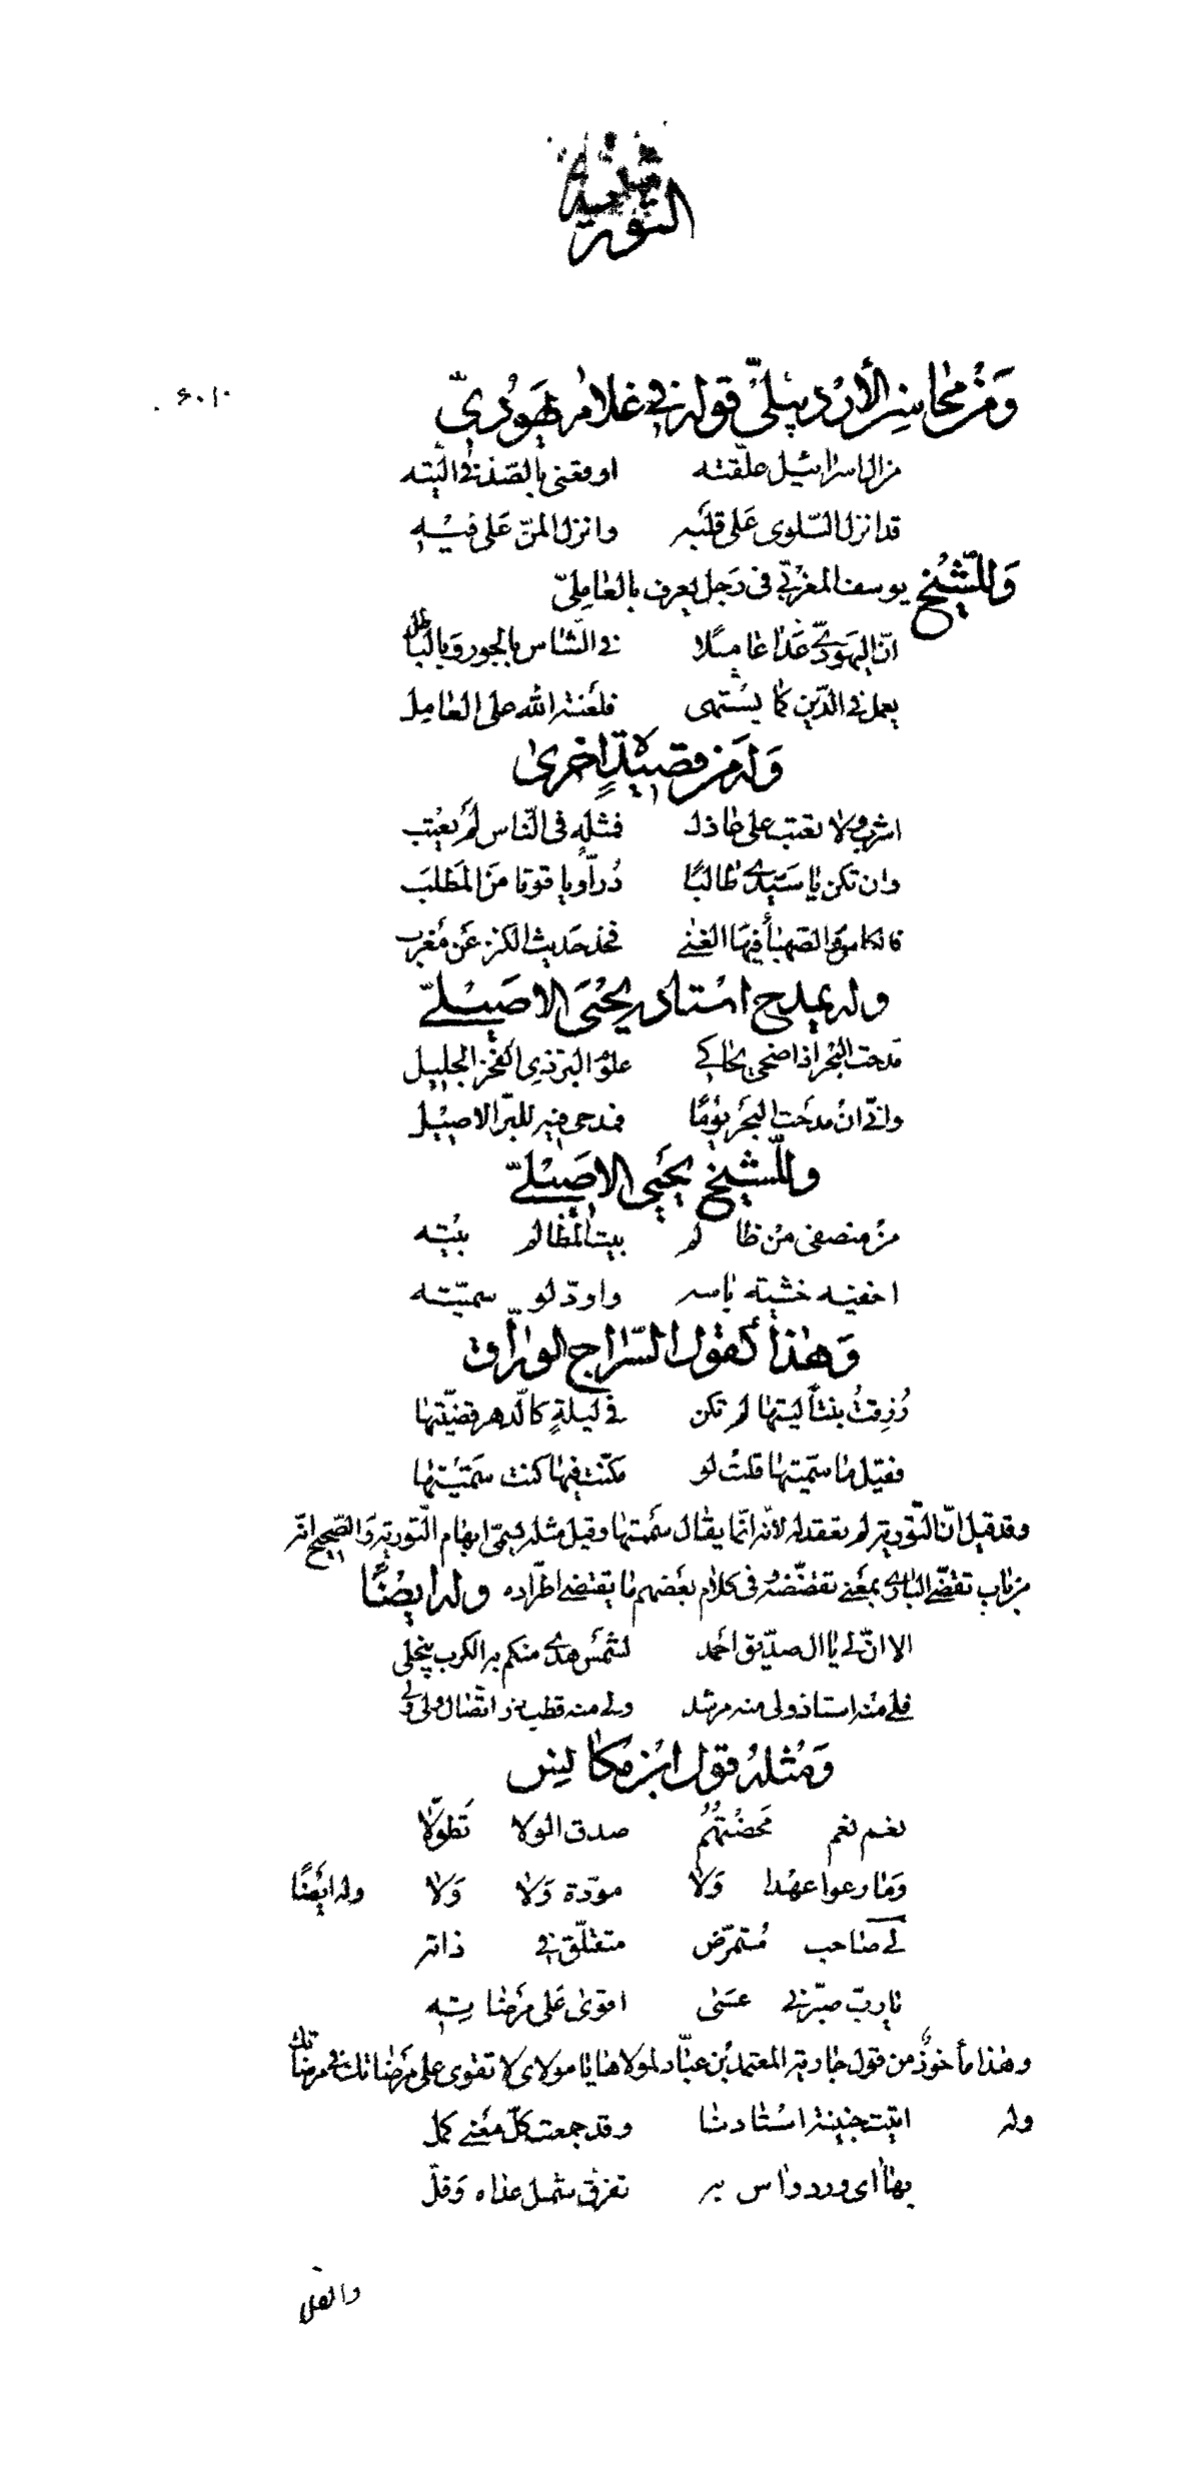 التورية
ومن محاسن الأردبيلي قوله في غلام يهودي
من ال اسرائيل علقته اوقعني بالصد في التيه
قد انزل السلوى على قلبه وانزل المن على فيه
وللشيخ يوسف المغربي في رجل يعرف بالعاملي
ان اليهودي غدا عاملا في الناس بالجور وبالباطل
يعمل في الدين كما يشتهي فلعنة الله على العامل
وله من قصيدة اخرى
اشرب ولا تعتب على عاذل فمثله في الناس لم يعتب
وان تكن يا سيدي طالبا درا وياقوتا من المطلب
فالكاس والصهبا فيها الغنى فخذ حديث الكنز عن مغربي
وله يمدح استاذه يحيى الاصيلي
مدحت البحر اذ اضحى يحاكي علوم البر ذي الفخر الجليل
واني ان مدحت البحر يوما فمدحي فيه للبر الاصيل
وللشيخ يحيى الاصيلي
من منصفي من ظالم بيت المظالم بيته
اخفيه خشية باسه واود لو سميته
وهذا كقول السراج الوراق
رزقت بنتا ليتها لم تكن في ليلة كالدهر قضيتها
فقيل ما سميتها قلت لو مكنت فيها كنت سميتها
وقد قيل ان التورية لم تعقد له لانه انما يقال سممتها وقيل مثله يسمى ايهام التورية والصحيح انه
من باب تقضي البازي بمعنى تقضضه وفي كلام بعضهم ما يقتضي اطراده وله ايضا
الا ان لي يا ال صديق احمد لشمس هدى منكم به الكرب ينجلي
فلي منه استاذ ولي منه مرشد ولي منه قطب ولي
ومثله قول ابن مكانس
نعم نعم محضتهم صدق الولا تطولا
وما رعوا عهدا ولا مودة ولا ولا وله ايضا
لي صاحب متمرض متغلق في ذاته
يا رب صبرني عسى اقوى على مرضاته
وهذا مأخوذ من قول جارية المعتمد بن عباد لمولاها يا مولاي لا تقوى على مرضاتك في مرضاتك
وله اتيت جنينة استادنا وقد جمعت كل معنى كمل
بها اي ورد واس به تفرق شمل عداه وقل